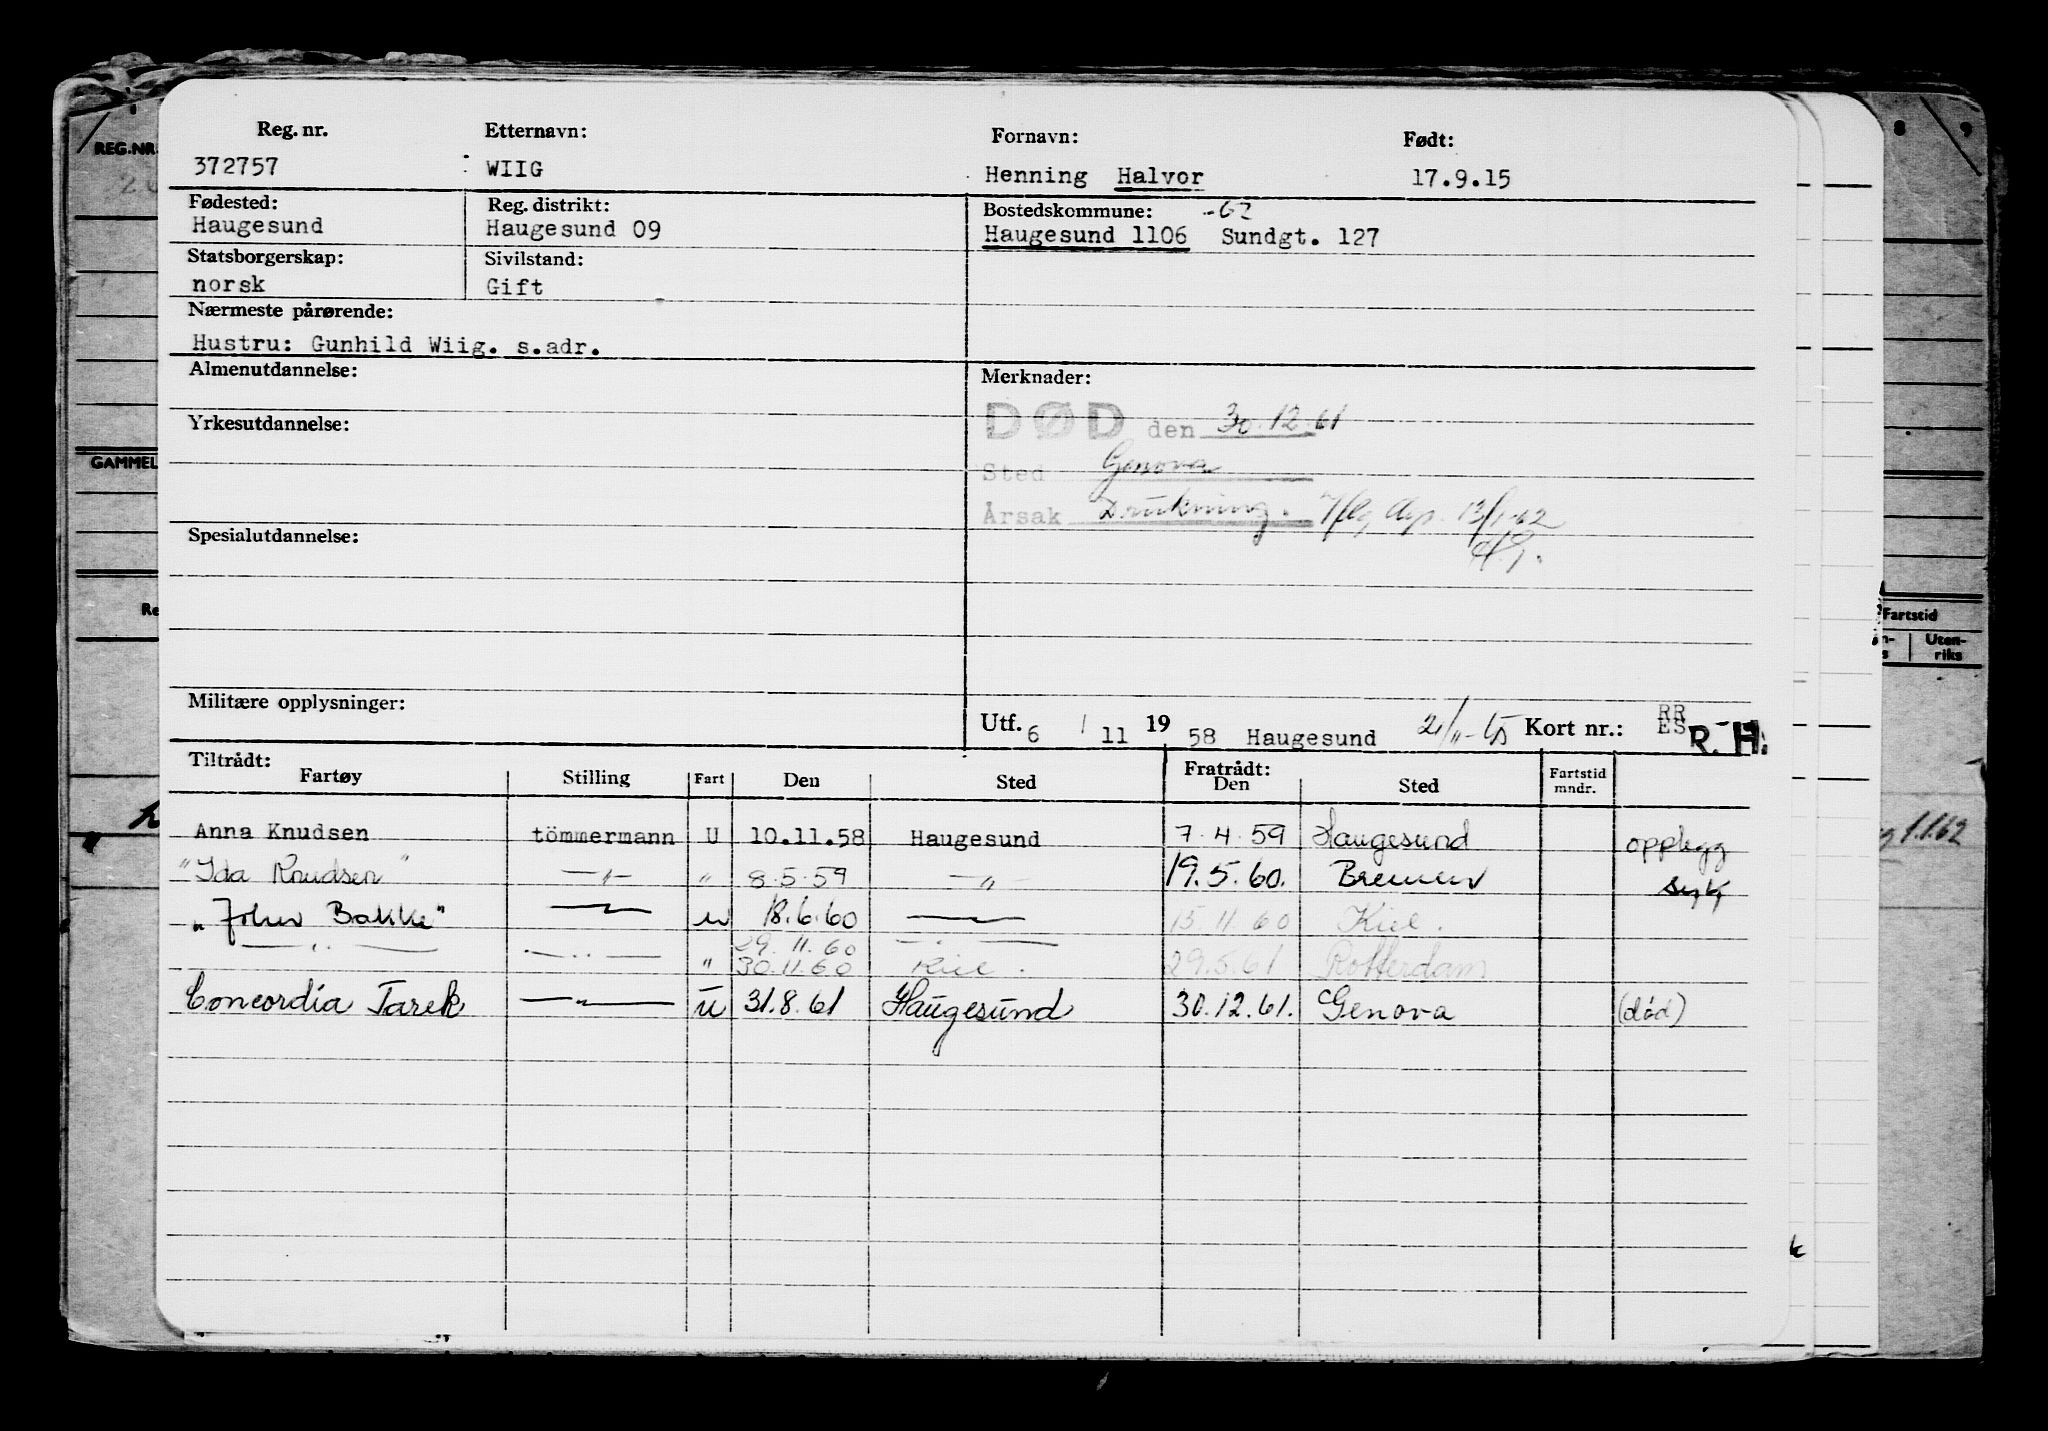 Reg. nr. Etternavn: Fornavn: Født:
372757 WIIG Henning Halvor 17.9.15
Fødested: Reg. distrikt: Bostedskommune: -62
Haugesund Haugesund 09 Haugesund 1106 Sundgt. 127
Statsborgerskap: Sivilstand:
norsk Gift
Nærmeste pårørende:
Hustru: Gunhild Wiig. s.adr.
Almenutdannelse: Merknader:
DØD den 30.12.61
Yrkesutdannelse:
Sted Genova
Årsak Drukning. 13/1-62
Spesialutdannelse:
Militære opplysninger:
Utf. 6 / 11 1958 Haugesund Kort nr.: RR
ES R. H.
Tiltrådt: Fratrådt:
Fartøy Stilling Fart Den Sted Den Sted Fartstid mndr.
Anna Knudsen tömmermann U 10.11.58 Haugesund 7.4.59 Haugesund opplegg
"Ida Knudsen" —"— " 8.5.59 —"— 19.5.60. Bremen syk
"John Bakke" —"— u 18.6.60 —"— 15.11.60 Kiel.
—"— —"— 29.11.60 —"—
" 30.11.60 Kiel. 29.5.61 Rotterdam
Concordia Tarek —"— u 31.8.61 Haugesund 30.12.61. Genova (död)
REG.NR.
GAMMEL
8 9
Fartstid
Uten-
riks
1.1.62